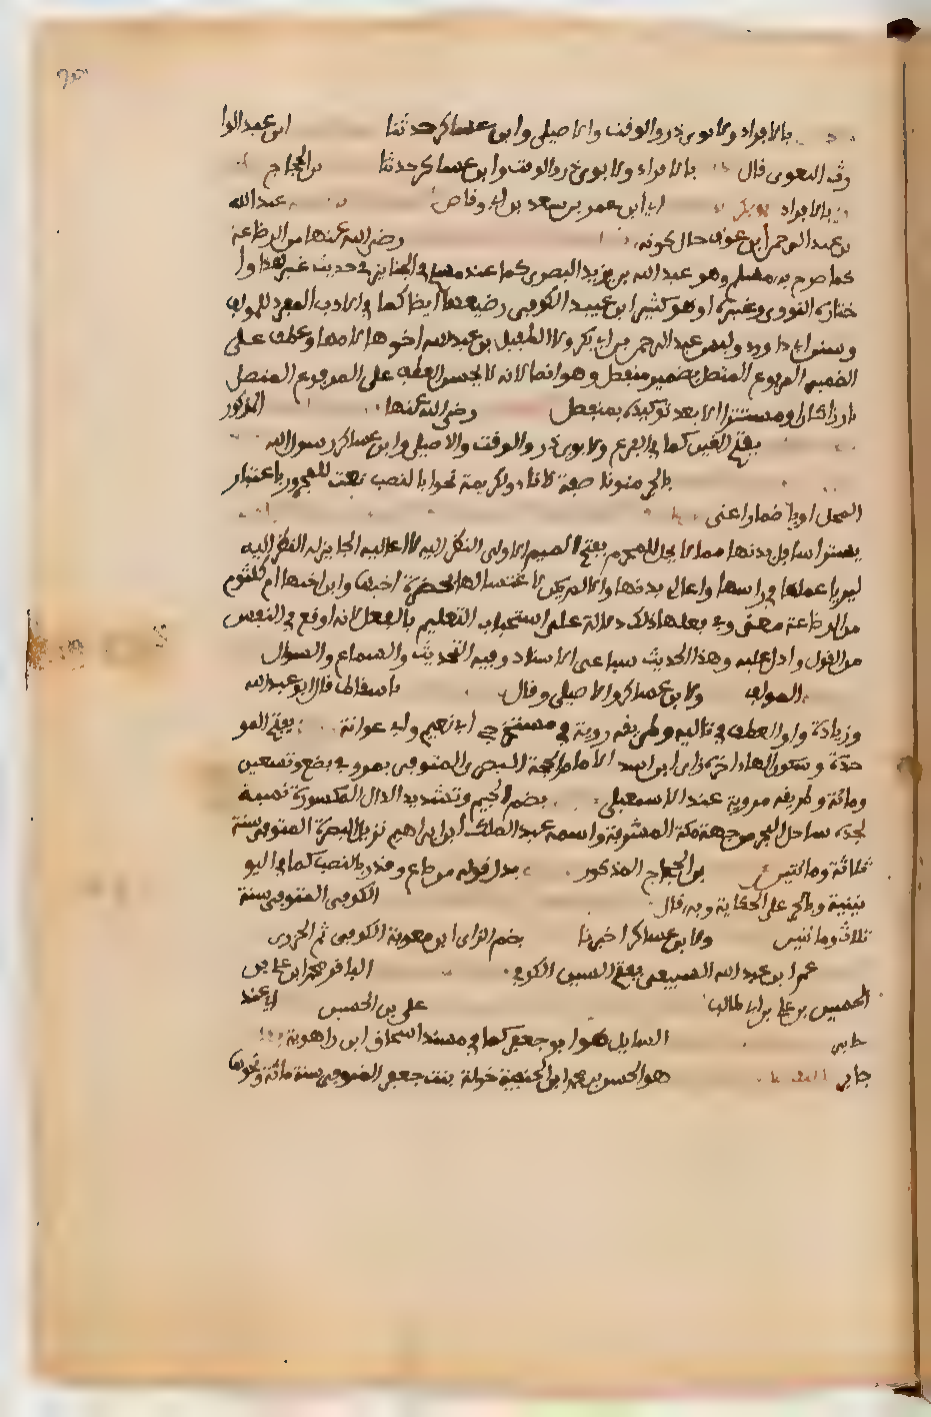 بالافراد ولابوي ذر والوقت والاصيلي وابن عساكر حدثنا ابن عبد الوا
وفـ البغوى قال بالافراد ولابوي ذر والوقت وابن عساكر حدثنا بن الحجاج
بالافراد ابو بكر اي ابن عمر بن سعد بن ابي وقاص عبد الله
بن عبد الرحمن ابن عوف حال كونه رضي الله عنها من الرضاعة
كما صرح به مسلم وهو عبد الله بن يزيد البصري كما عند مسلم في الجنائز في حديث غير هذا وا
ختاره النووي وغيره او هو كثير ابن عبيد الكوفي رضيعها ايضا كما في الادب المفرد للمولف
وسنن ابي داوود وليس عبد الرحمن بن ابي بكر ولا الطفيل بن عبد الله اخوها لامها وعطف على
الضمير المرفوع المتصل بضمير منفصل وهو انما لانه لا يحسن العطف على المرفوع المتصل
بارزا كان او مستترا الا بعد توكيده بمنفصل رضي الله عنها المذكور
بفتح الغين كما في الفرع ولابوي ذر والوقت والاصيلي وابن عساكر رسول الله
بالجر منونا صفة لانا ولكريمة نحوا بالنصب نعت للمجرور باعتبار
المحل او باضمار اعني
يستر اسافل بدنها مما لا يحل للمحرم بفتح الميم الاولى النظر اليه لا اعاليه الجايز له النظر اليه
ليريا عملها في راسها واعالي بدنها والا لم يكن لاغتسالها بحضرة اخيها وابن اختها ام كلثوم
من الرضاعة معنى وفي فعلها ذلك دلالة على استحباب التعليم بالفعل لانه اوقع في النفس
من القول وادل عليه وهذا الحديث سباعي الاسناد وفيه التحديث والسماع والسوال
المولف ولابن عساكر والاصيلي وقال باسقاط قال ابو عبد الله
وزيادة واو العطف في تاليه وطريقه روية في مستخرجي ابي نعيم وابي عوانة بفتح المو
حدة وسكون الهاء اخره زاي ابن اسد الامام الحجة البصري المتوفى بمرو في بضع وتسعين
ومائة وطريقه مروية عند الاسمعيلي بضم الجيم وتشديد الدال المكسورة نسبة
لجدة ساحل البحر من جهة مكة المشرفة واسمه عبد الملك ابن ابراهيم نزيل البصرة المتوفى سنة
ثلاثة ومائتين بن الحجاج المذكور بدل قوله من صاع وقدر بالنصب كما في اليو
نينية وبالجر على الحكاية وبه قال الكوفي المتوفى سنة
ثلاث ومائتين ولابن عساكر اخبرنا بضم الزاي ابن معوية الكوفي ثم الجزري
عمر ابن عبد الله السبيعي بفتح السين الكوفي الباقر محمد ابن علي بن
الحسين بن علي بن ابي طالب علي بن الحسين اي عند
جابر السايل هو ابو جعفر كما في مسند اسحاق ابن راهوية
جابر هو الحسن بن محمد ابن الحنفية خولة بنت جعفر المتوفى سنة مائة ونحوها